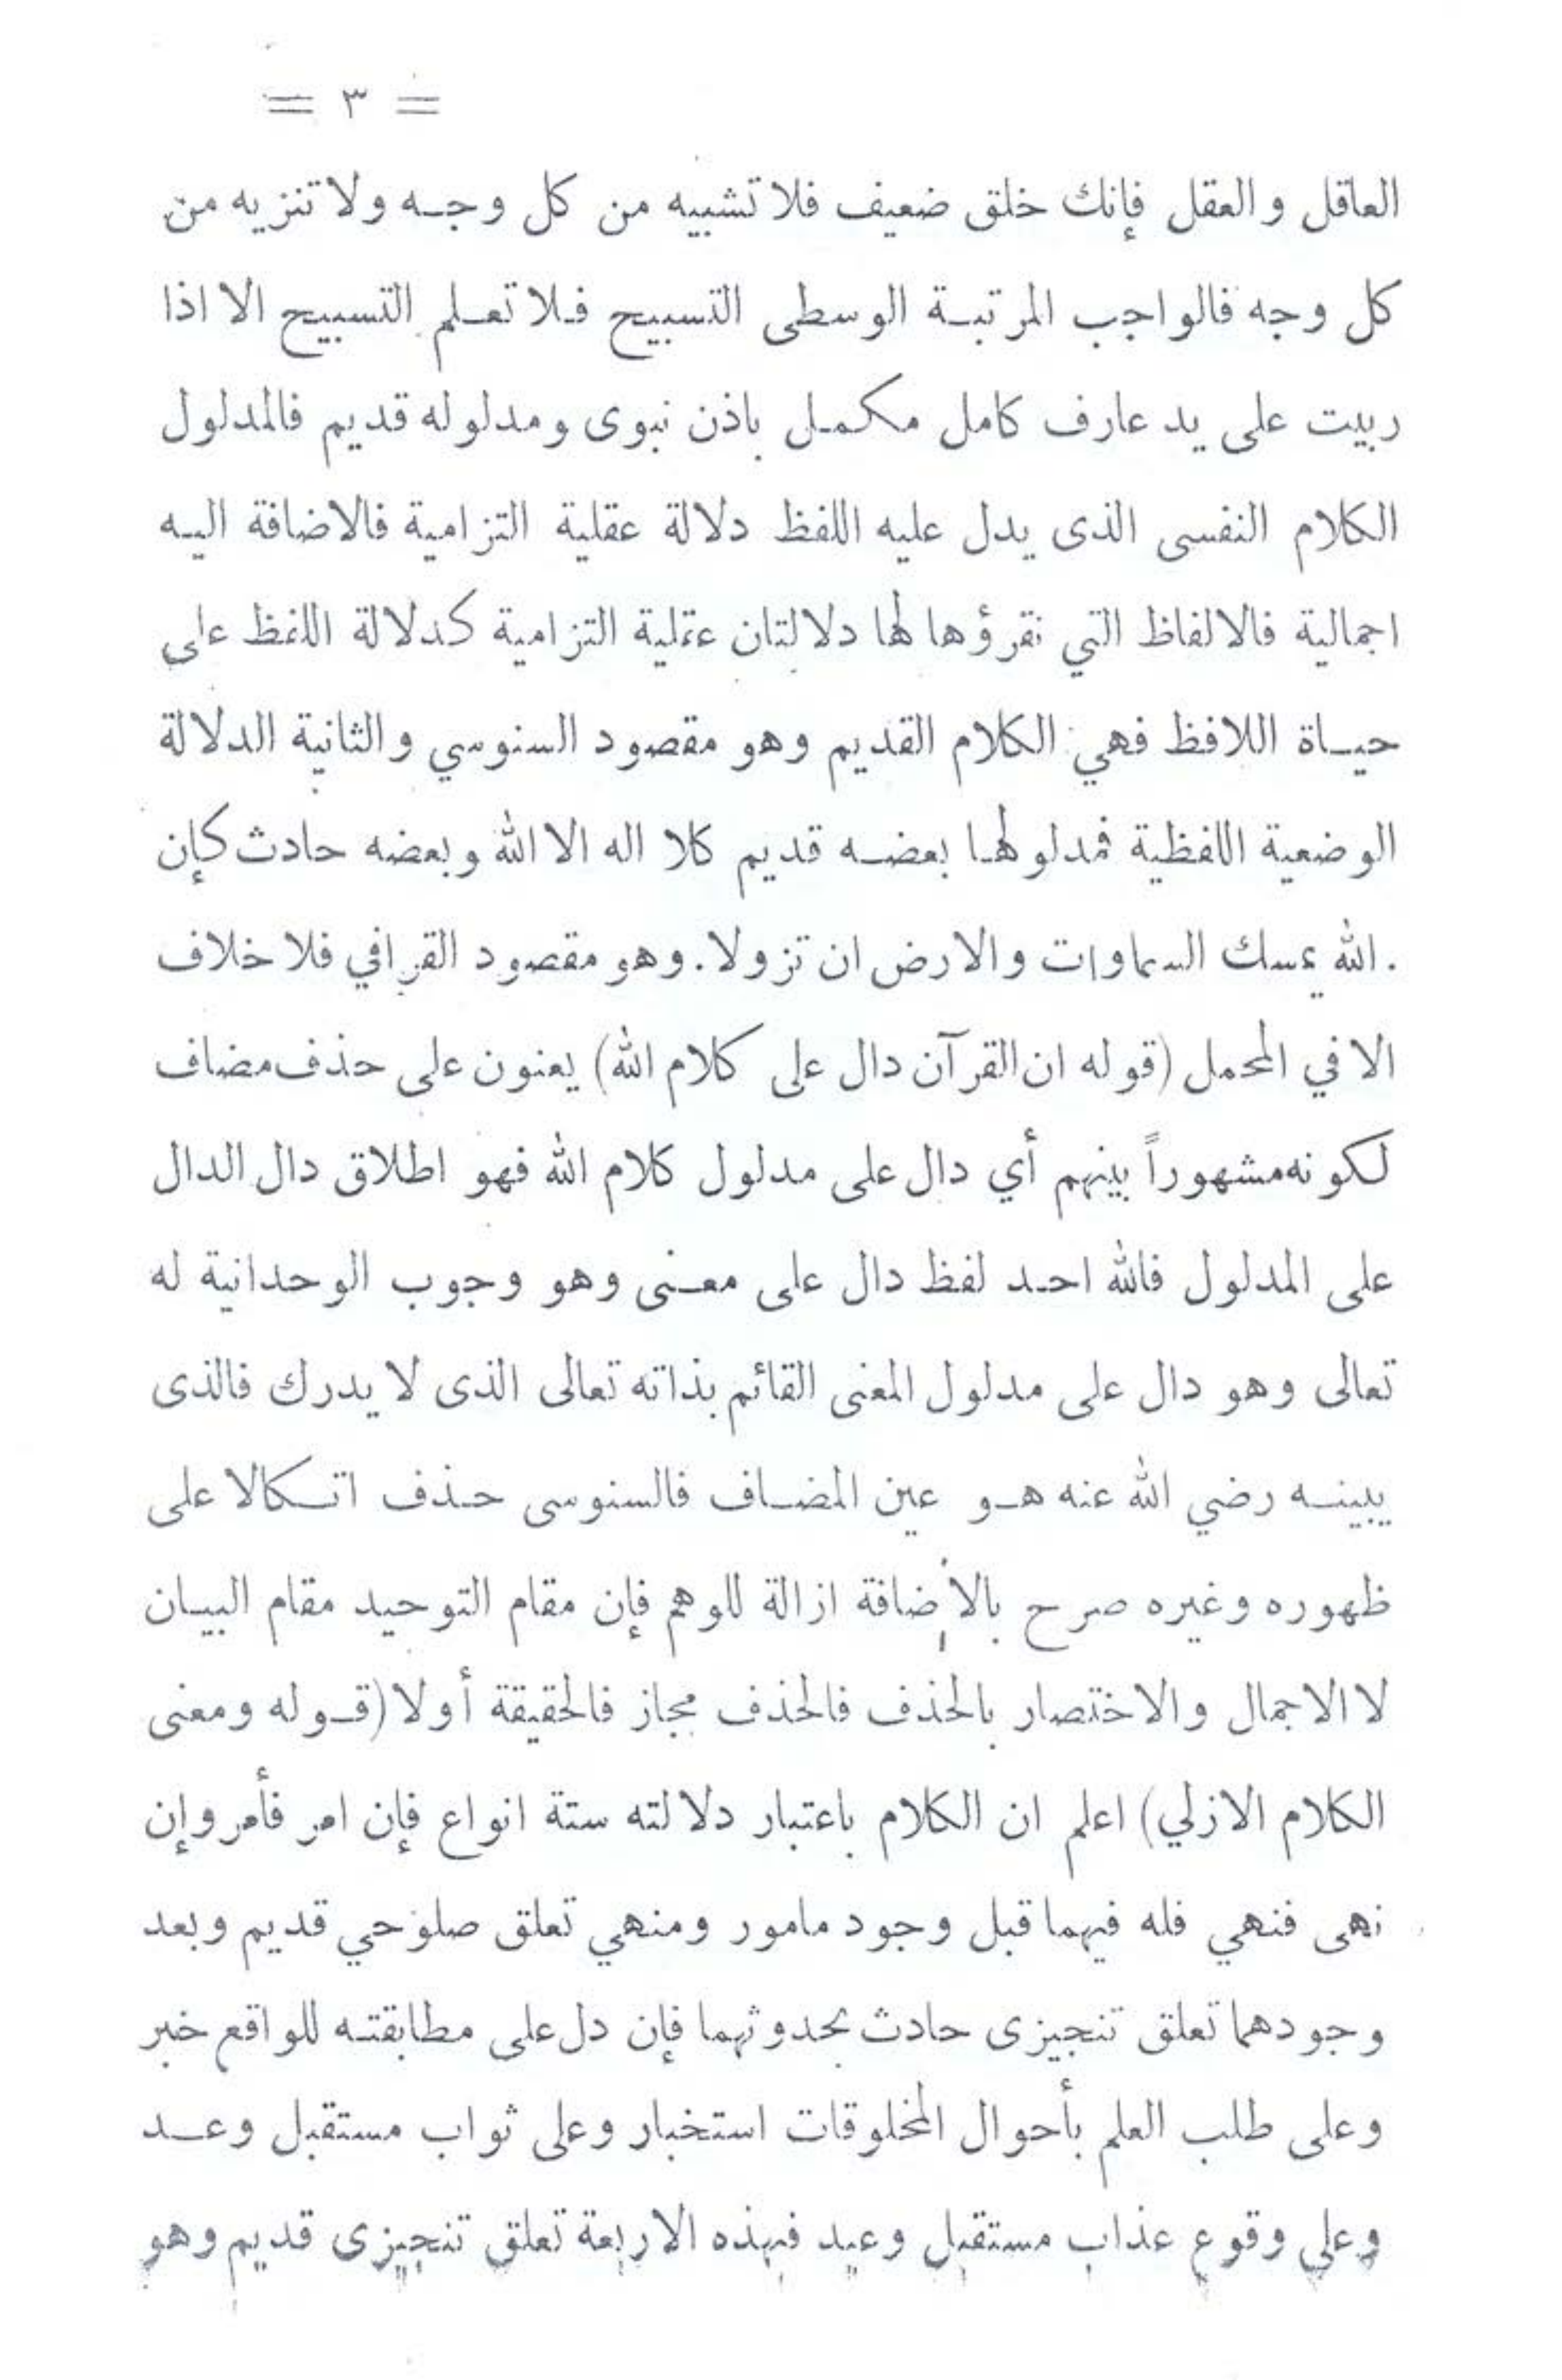 = ٣ =
العاقل والعقل فإنك خلق ضعيف فلا تشبيه من كل وجـه ولا تنزيه من
كل وجه فالواجب المرتبـة الوسطى التسبيح فـلا تعـلم التسبيح الا اذا
ربيت على يد عارف كامل مكمـل باذن نبوى ومدلوله قديم فالمدلول
الكلام النفسى الذى يدل عليه اللفظ دلالة عقلية التزامية فالاضافة اليـه
اجمالية فالالفاظ التي نقرؤها لها دلالتان عقلية التزامية كدلالة اللفظ على
حيـاة اللافظ فهي الكلام القديم وهو مقصود السنوسي والثانية الدلالة
الوضعية اللفظية فمدلولهـا بعضـه قديم كلا اله الا الله وبعضه حادث كإن
الله يمسك السماوات والارض ان تزولا. وهو مقصود القرافي فلا خلاف
الا في المحمل (قوله ان القرآن دال على كلام الله) يعنون على حذف مضاف
لكونه مشهوراً بينهم أي دال على مدلول كلام الله فهو اطلاق دال الدال
على المدلول فالله احـد لفظ دال على معـنى وهو وجوب الوحدانية له
تعالى وهو دال على مدلول المعنى القائم بذاته تعالى الذى لا يدرك فالذى
يبينـه رضي الله عنه هـو عين المضـاف فالسنوسى حـذف اتـكالا على
ظهوره وغيره صرح بالأِضافة ازالة للوهم فإن مقام التوحيد مقام البيـان
لا الاجمال والاختصار بالحذف فالحذف مجاز فالحقيقة أولا (قـوله ومعنى
الكلام الازلي) اعلم ان الكلام باعتبار دلالته ستة انواع فإن امر فأمر وإن
نهى فنهي فله فيهما قبل وجود مامور ومنهي تعلق صلوحي قديم وبعد
وجودهما تعلق تنجيزى حادث بحدوثهما فإن دل على مطابقتـه للواقع خبر
وعلى طلب العلم بأحوال المخلوقات استخبار وعلى ثواب مستقبل وعـد
وعلى وقوع عذاب مستقبل وعيد فبهذه الاربعة تعلق تنجيزى قديم وهو